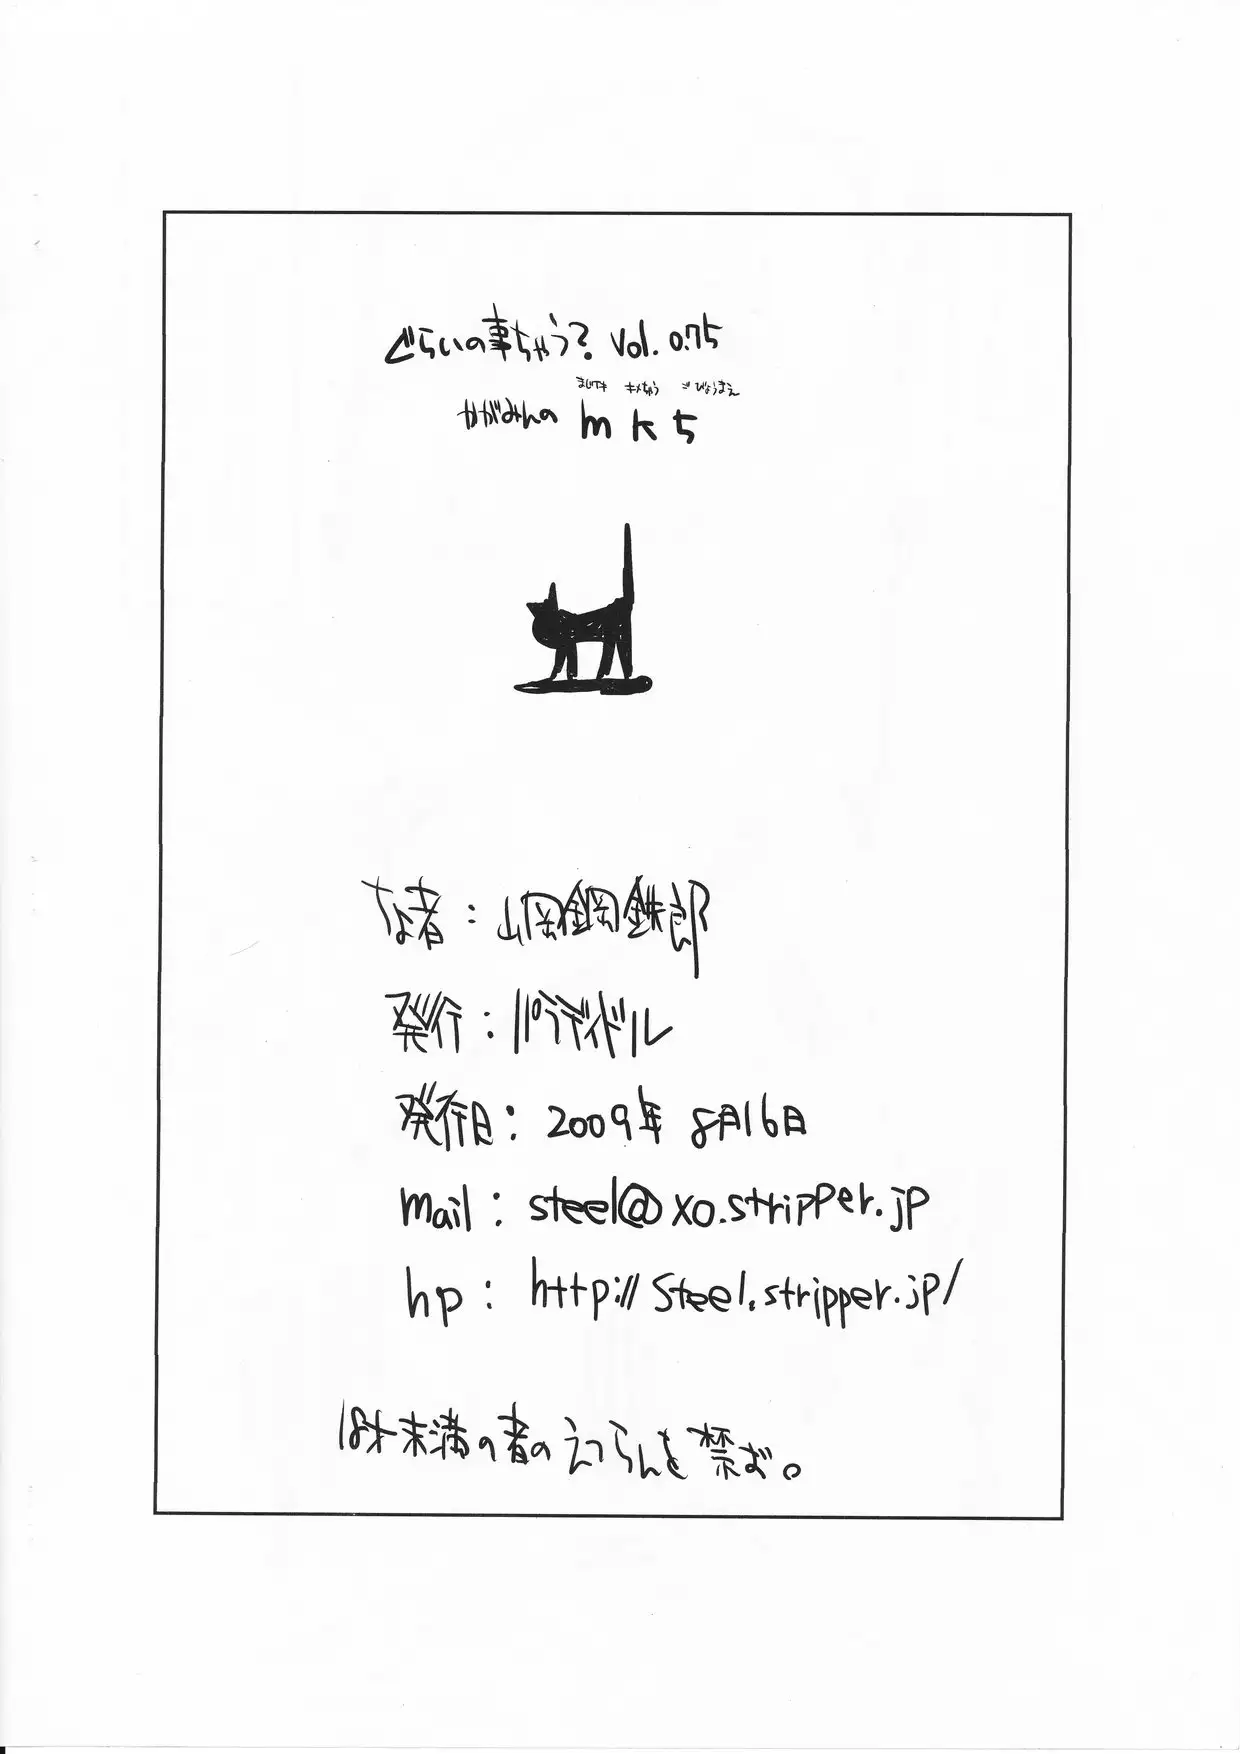 どらいの事ちゃう? Vol. 0.75
まじでキ キメちゃう ご びょうまえ
かがみんの mk5
ちょ者:山岡鋼鉄郎
発行:パラディドル
発行日:2009年 8月16日
mail:steel@xo.stripper.jp
hp:http://steel.stripper.jp/
18才未満の者のえつらんを禁ず。